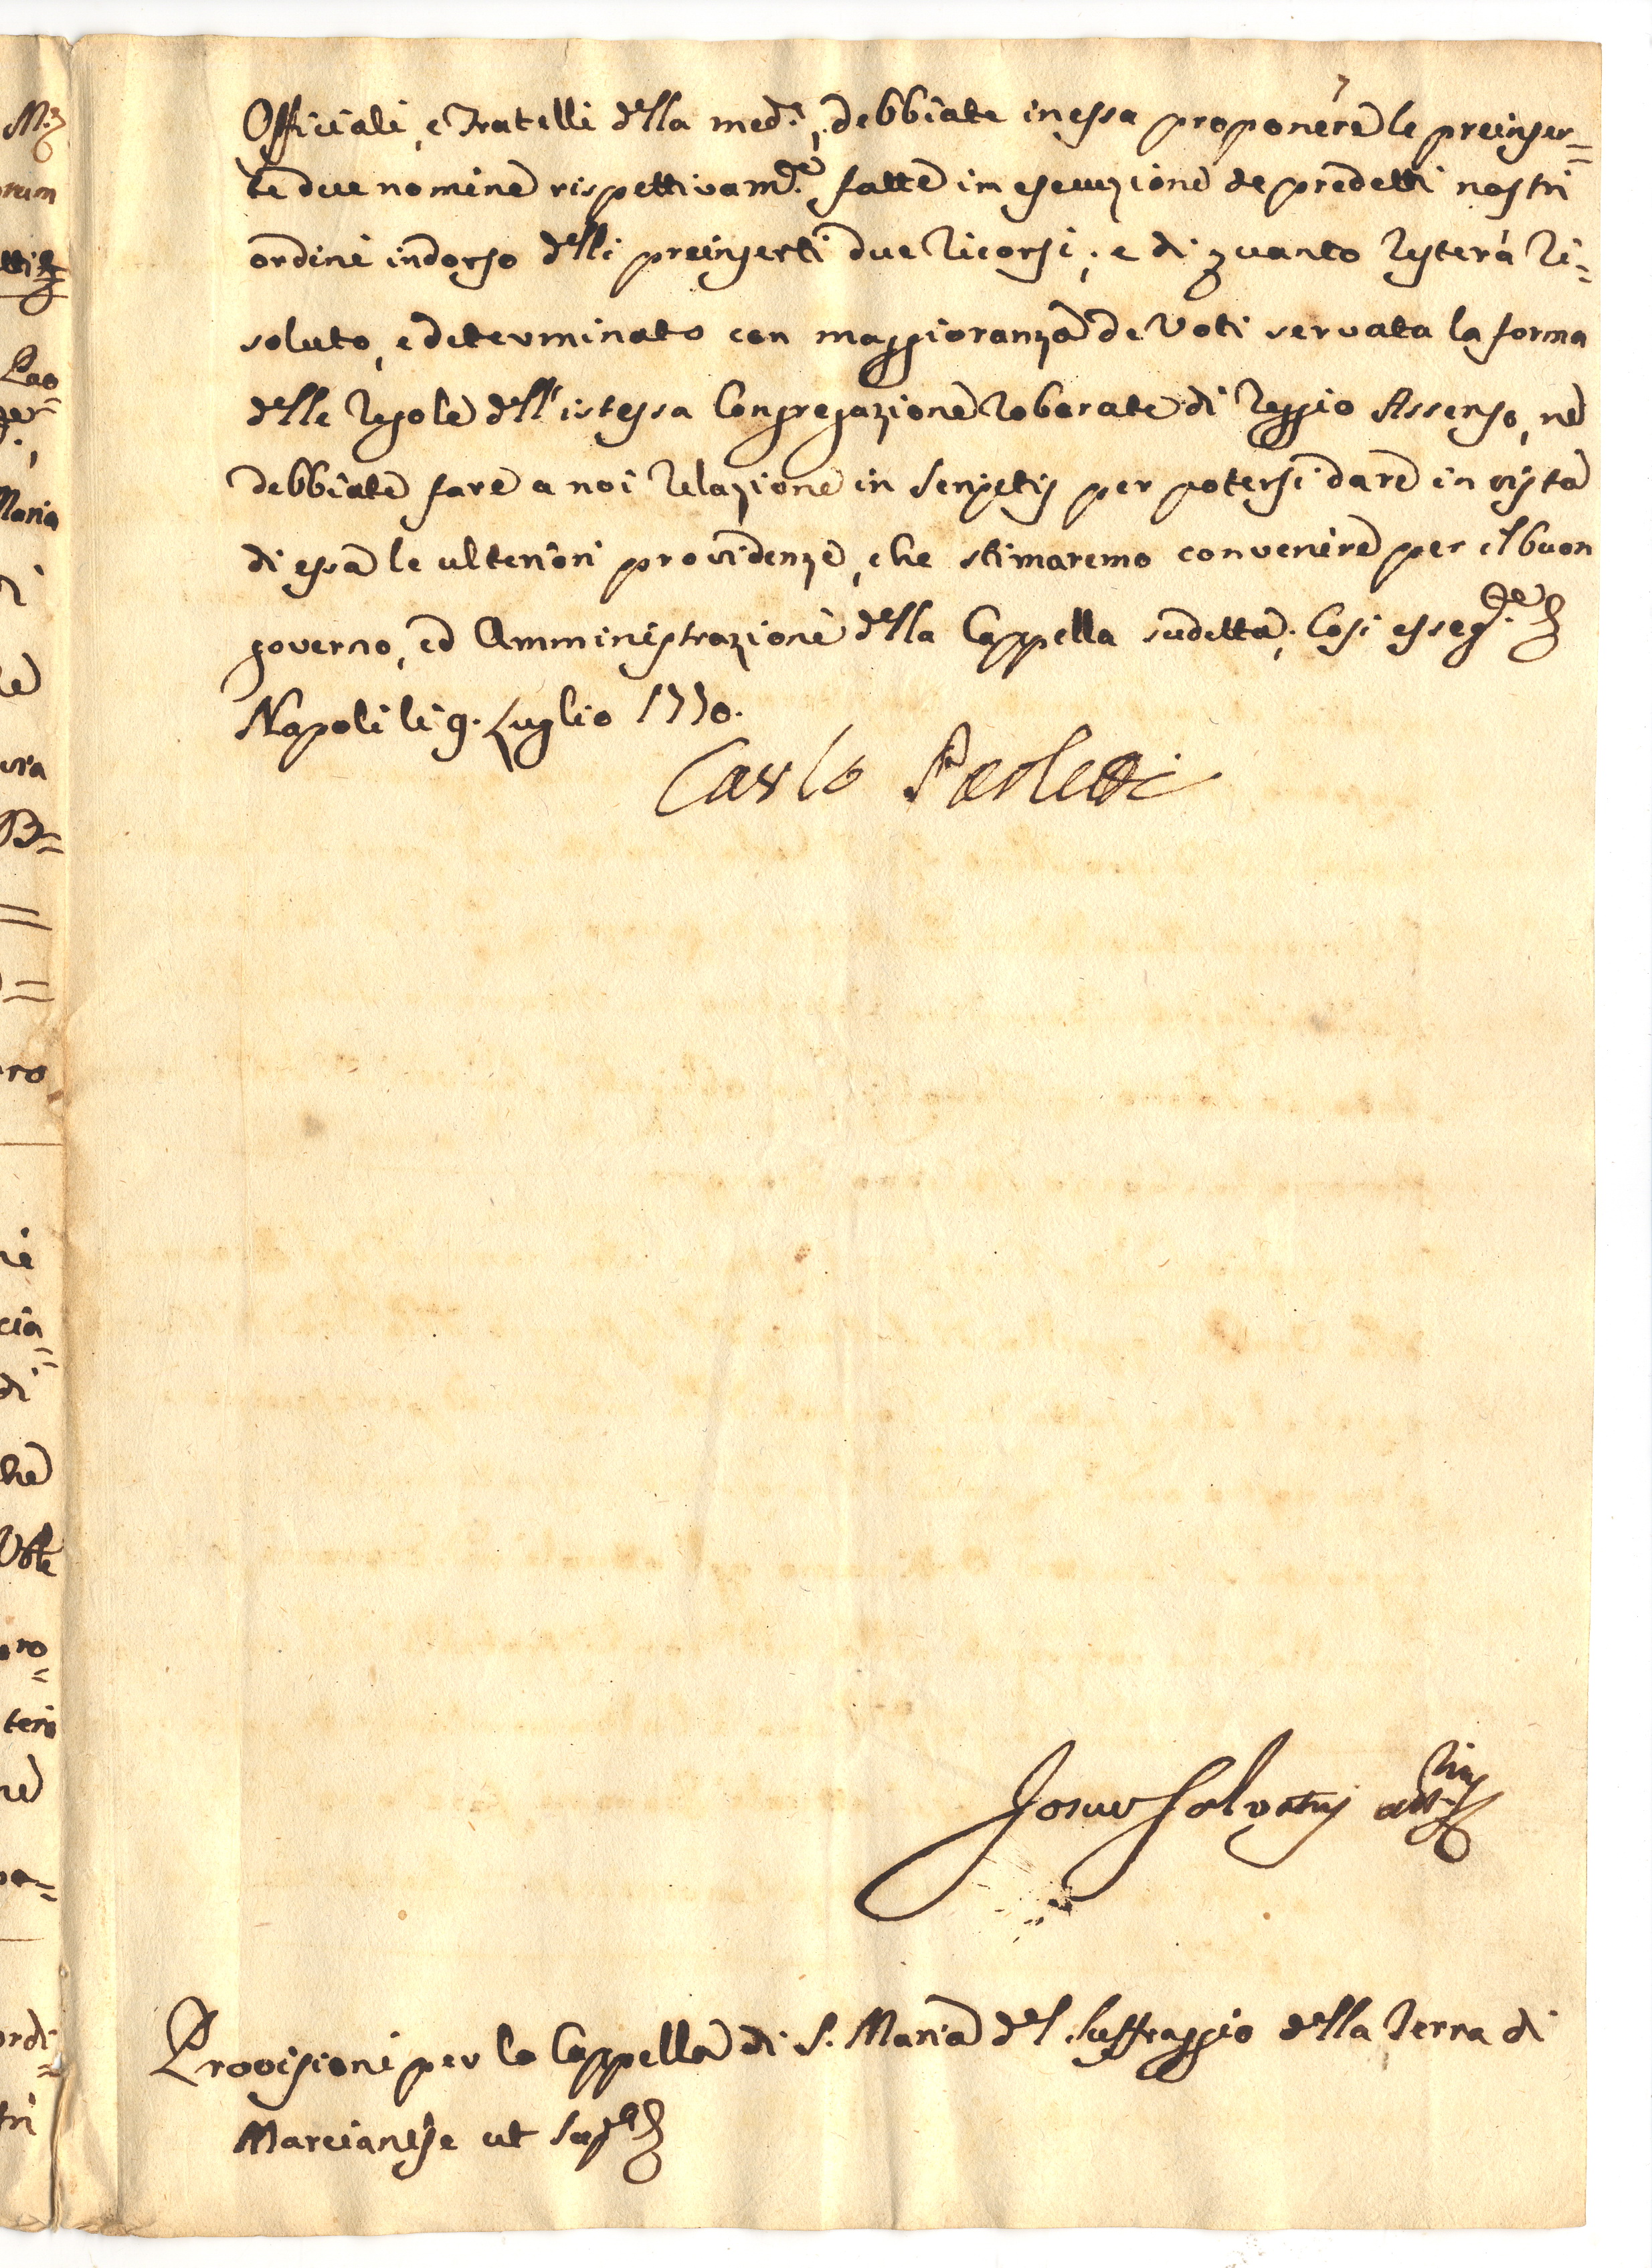 Officiali, e Fratelli della med.a, debbiate in essa proponere le preinser=
te due nomine rispettivam.te fatte in esecuzione de predetti nostri
ordini in dorso delli preinserti due ricorsi; e di quanto resterà ri=
soluto, e determinato con maggioranza de Voti servata la forma
delle regole dell'istessa Congregazione roborate di reggio Assenso, ne
debbiate fare a noi relazione in senzetis per potersi dare in vista
di essa le ulteriori providenze, che stimaremo convenire per il buon
governo, ed Amministrazione della Cappella sudetta; Così esseg.te
Napoli li 9. Luglio 1770.
Carlo Paoletti
Provisioni per la Cappella di S. Maria del Suffraggio della Terra di
Marcianese ut sup.a